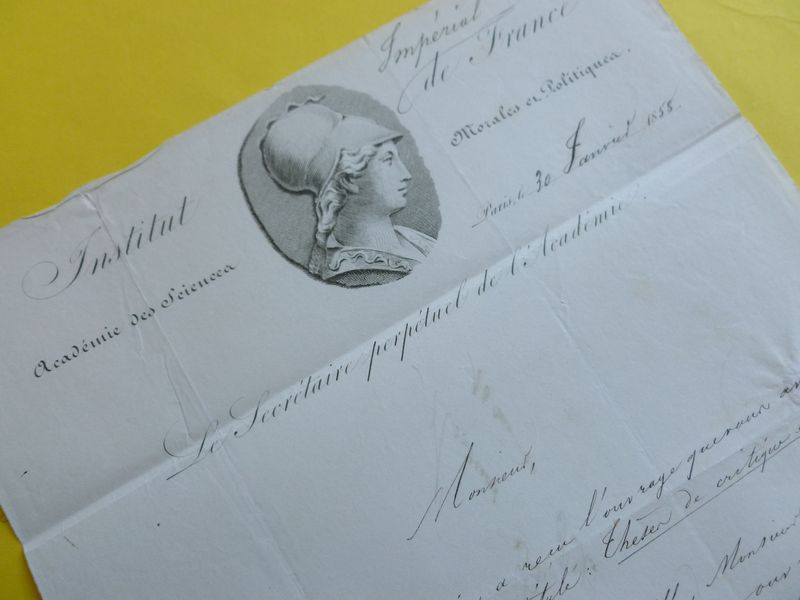 Institut Impérial de France
Académie des Sciences Morales et Politiques.
Paris, le 30 Janvier 1858.
Le Secrétaire perpétuel de l'Académie
Monsieur,
a reçu l'ouvrage que vous
: Thèses de critique
Monsieur